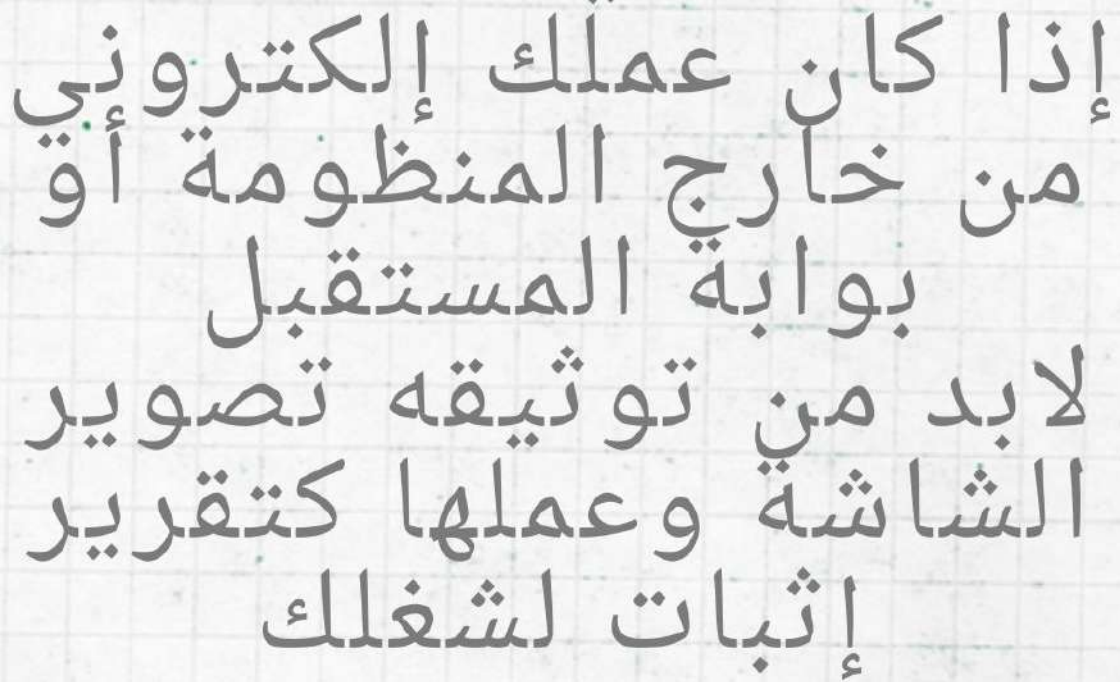 إذا كان عملك إلكتروني
من خارج المنظومة أو
بوابة المستقبل
لابد من توثيقه تصوير
الشاشة وعملها كتقرير
إثبات لشغلك